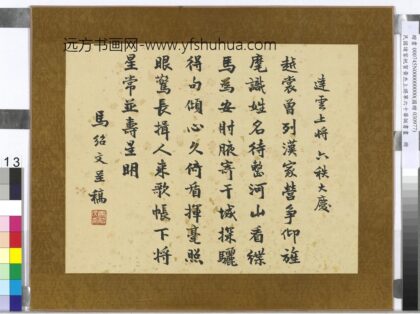 远方书画网-www.yfshuhua.com
達雲上將 六秩大慶
越裳曾列漢家營爭仰旌
麾識姓名待整河山看緤
馬焉安肘腋寄干城探驪
得句傾心久倚盾揮毫照
眼驚長揖人來歌帳下將
星常並壽星明
馬紹文呈稿
13